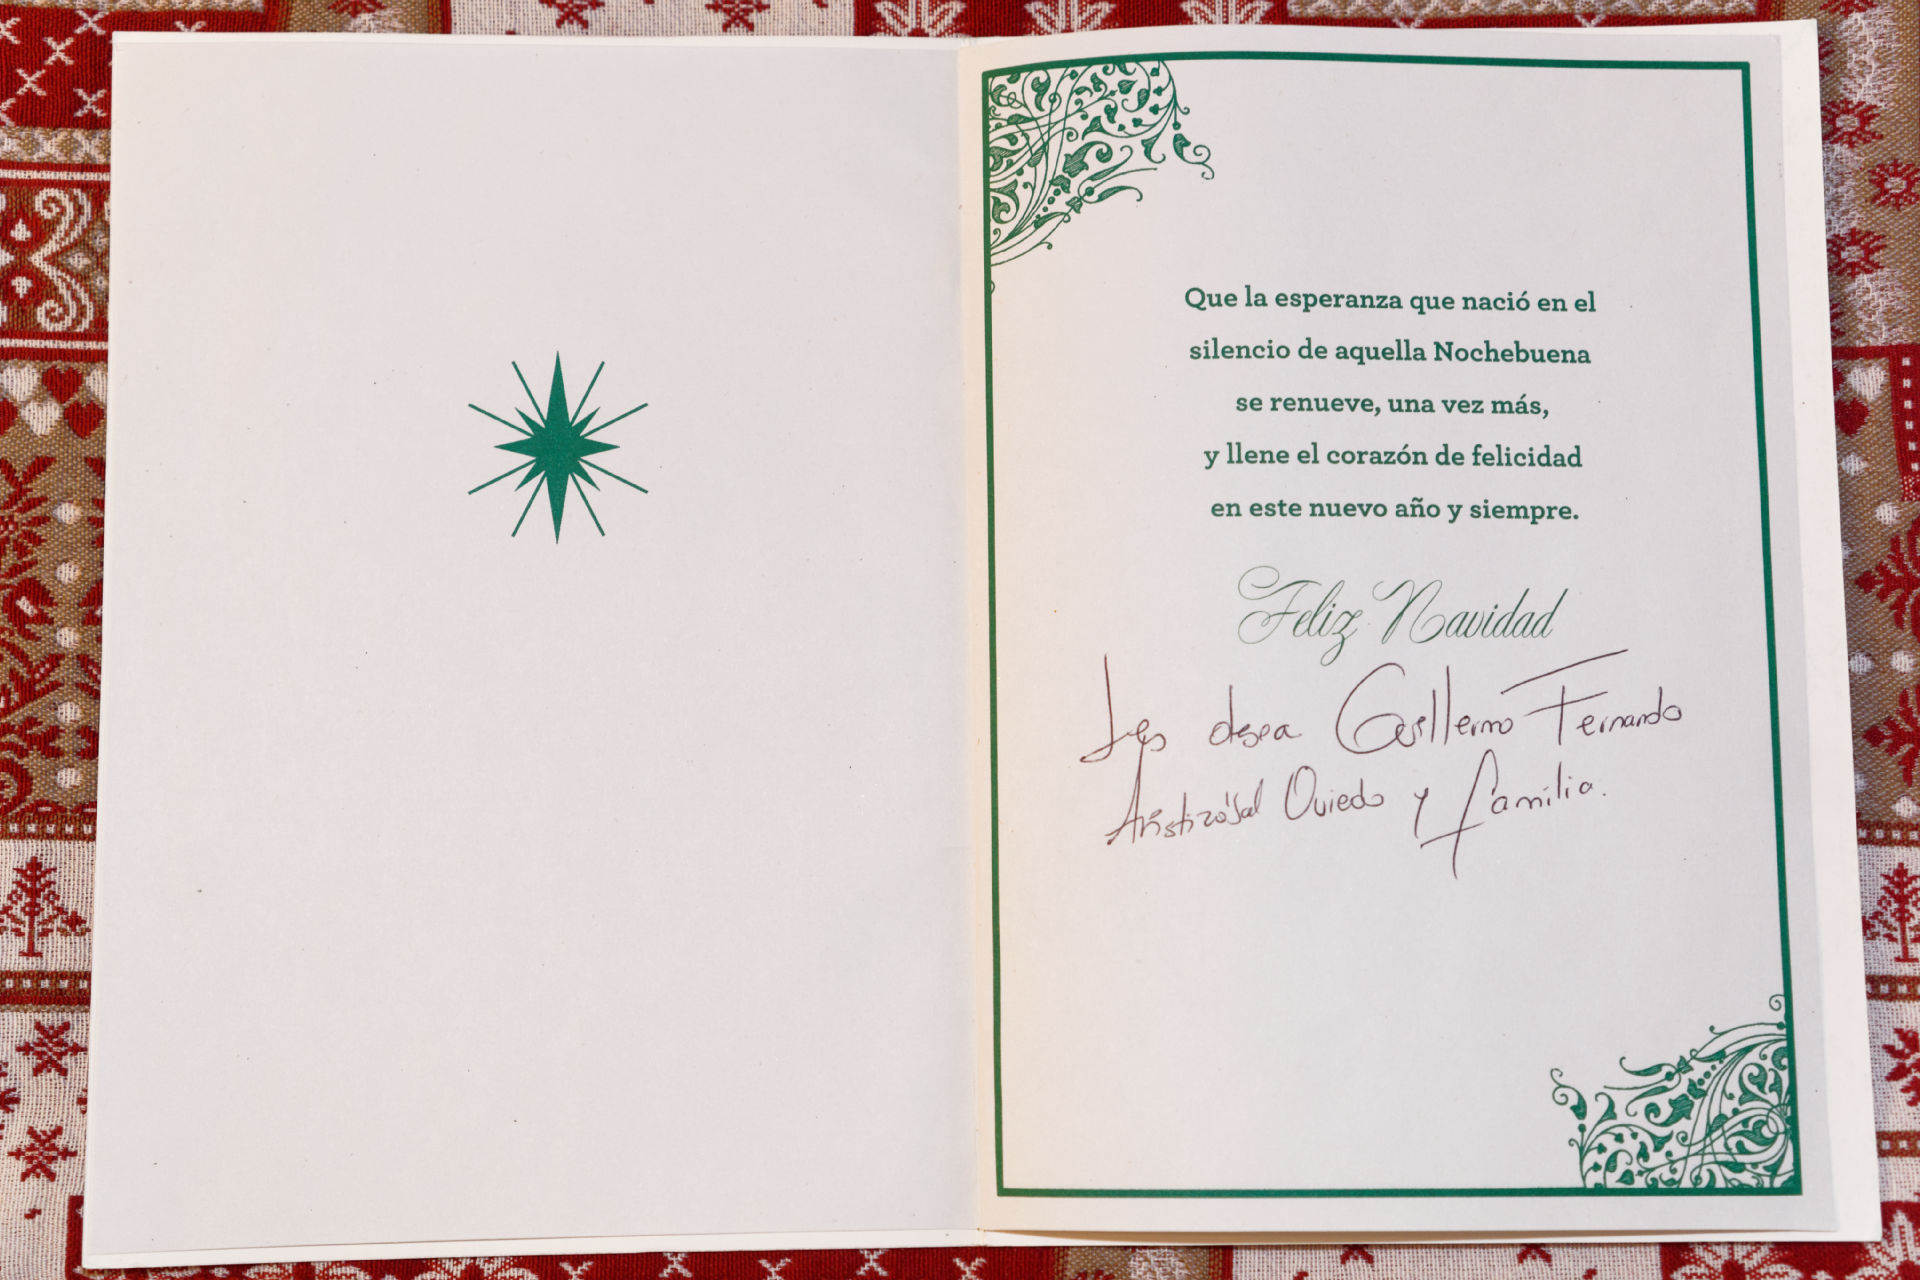 Que la esperanza que nació en el
silencio de aquella Nochebuena
se renueve, una vez más,
y llene el corazón de felicidad
en este nuevo año y siempre.
Feliz Navidad
Les desea Guillermo Fernando
Aristizábal Oviedo y familia.